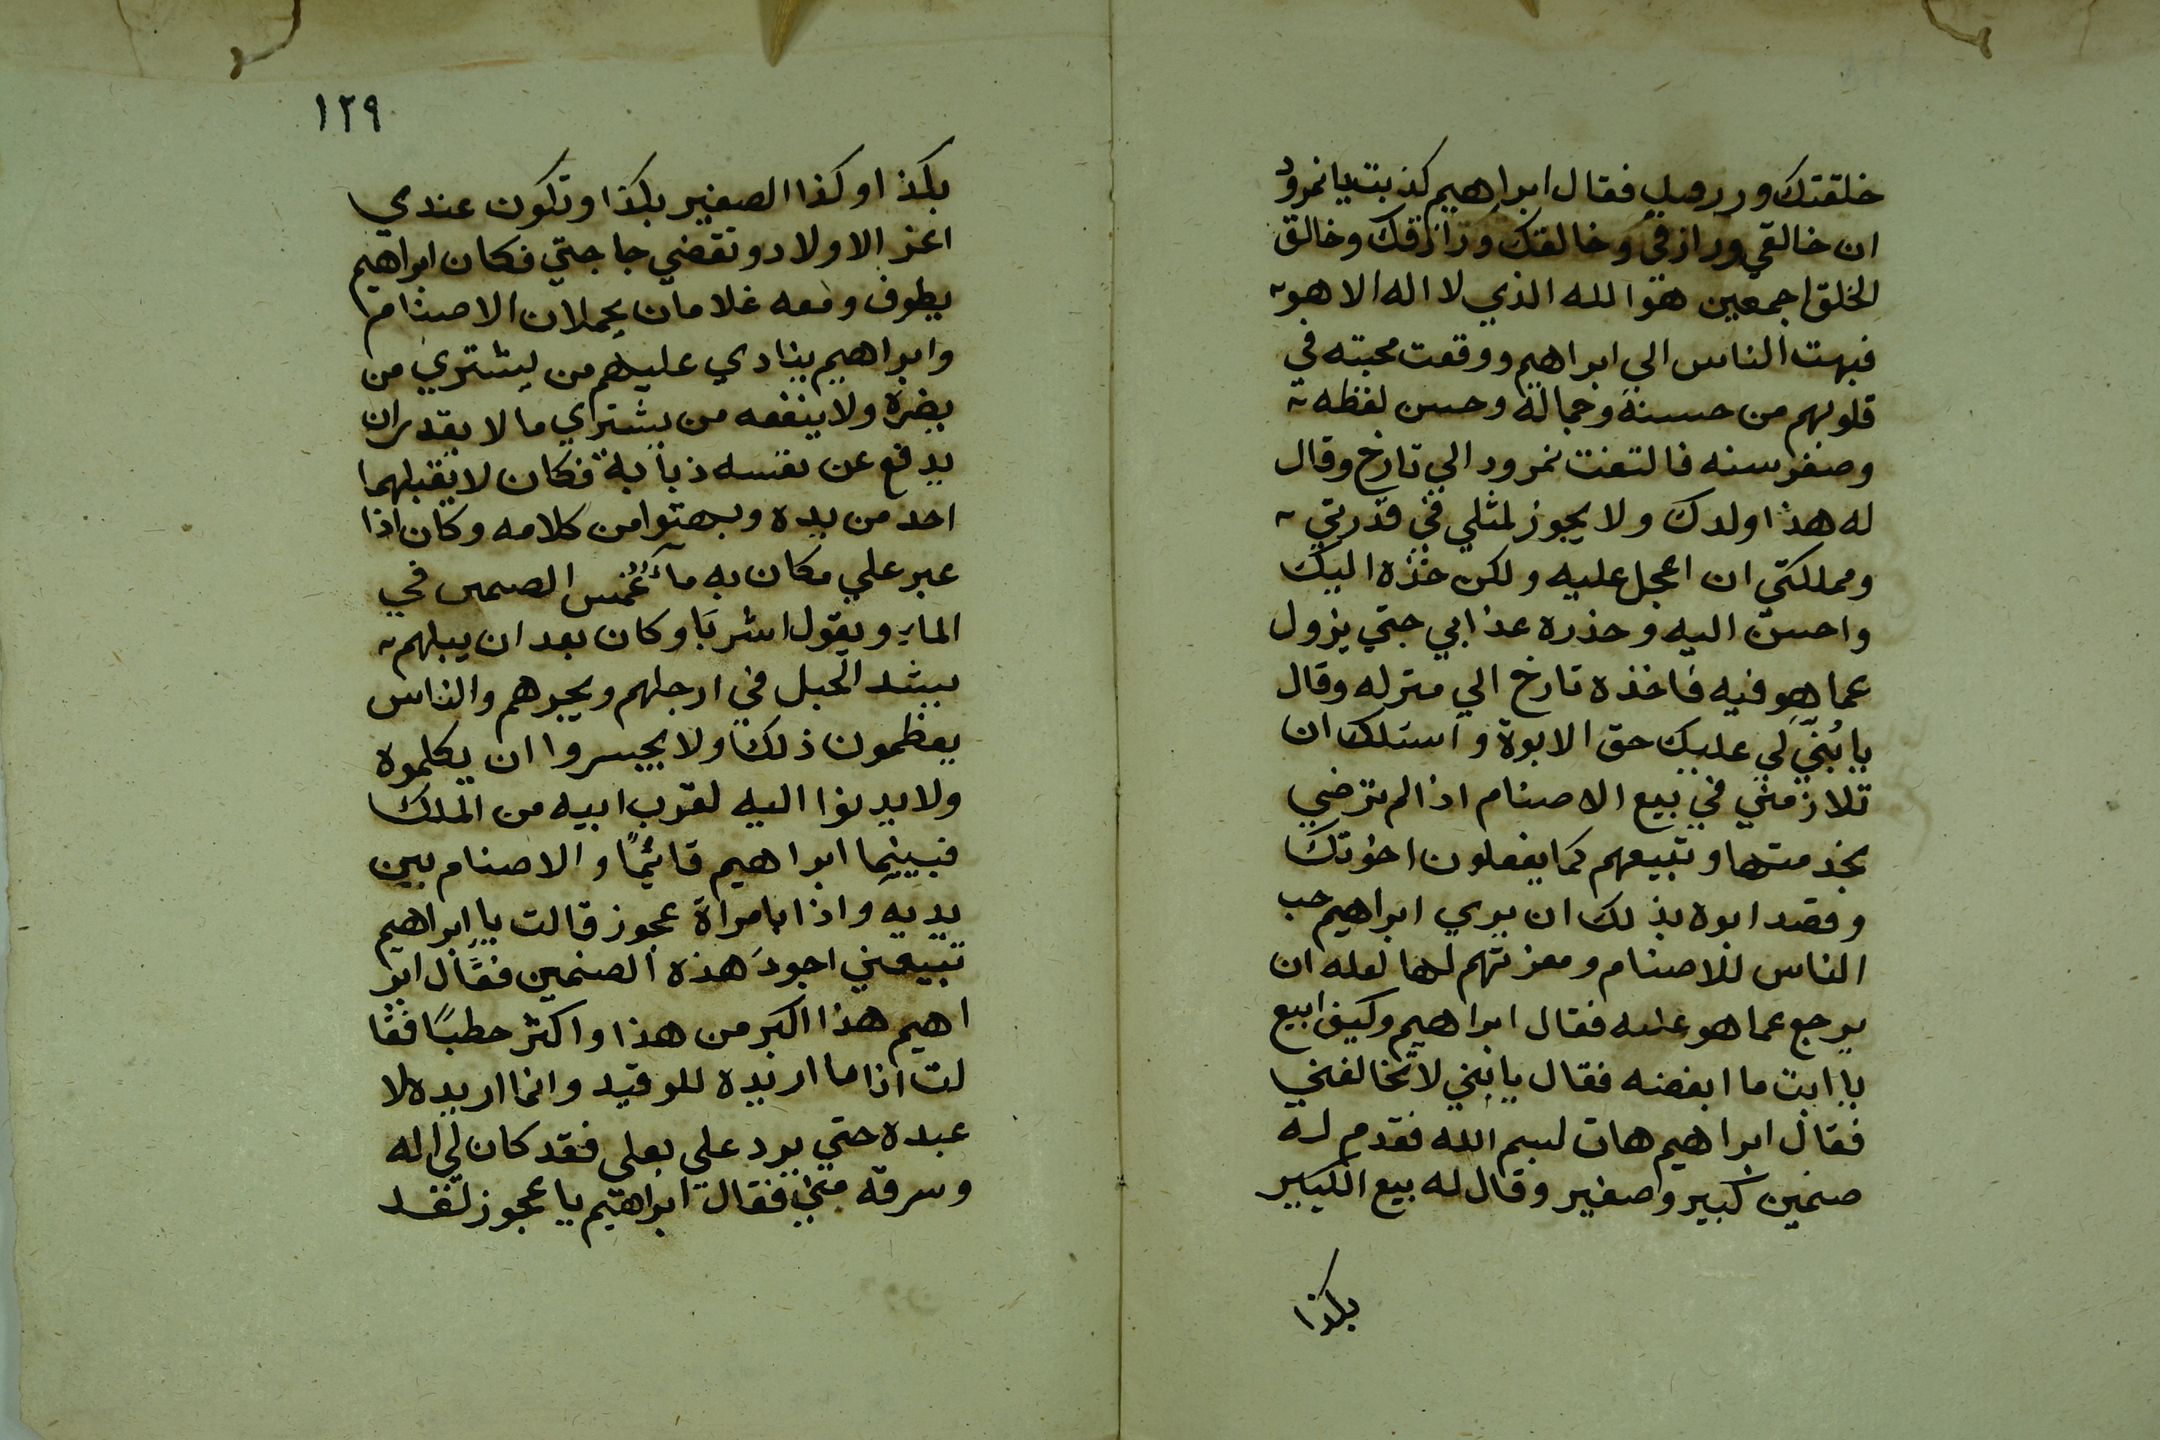 خلقتك و فقال ابراهيم كذبت يا نمرود
ان خالقي ورازقي وخالقك ورازقك وخالق
الخلق اجمعين هو الله الذي لا اله الا هو
فبهت الناس الي ابراهيم ووقعت محبته في
قلوبهم من حسنه وجماله وحسن لفظه
وصغر سنه فالتفت نمرود الي تارخ وقال
له هذا ولدك ولا يجوز لمثلي في قدرتي
ومملكتي ان اعجل عليه ولكن خذه اليك
واحسن اليه وحذره عذابي حتي يزول
عما هو فيه فاخذه تارخ الي منزله وقال
يا بُنيّ لي عليك حق الابوة واسئلك ان
تلازمني في بيع الاصنام اذا لم ترضي
بخدمتها وتبيعهم كما يفعلون اخوتك
وقصد ابوه بذلك ان يري ابراهيم حب
الناس للاصنام ومعزتهم لها لعله ان
يرجع عما هو عليه فقال ابراهيم وكيف ابيع
يا ابت ما ابغضه فقال يا بني لا تخالفني
فقال ابراهيم هات لبسم الله فقدم له
صنمين كبير وصغير وقال له بيع الكبير
بكذا
١٢٩
بكذا وكذا الصغير بكذا وتكون عندي
اعز الاولاد وتقضي حاجتي فكان ابراهيم
يطوف ومعه غلامان يحملان الاصنام
وابراهيم ينادي عليهم من يشتري من
يضره ولا ينفعه من يشتري ما لا يقدر ان
يدفع عن نفسه ذبابة فكان لا يقبلهما
احد من يده وبهتوا من كلامه وكان اذا
عبر علي مكان به مآء غمس الصمين في
الماء ويقول اشربَا وكان بعد ان يبلهم
يشد الحبل في ارجلهم ويجرهم والناس
يعظمون ذلك ولا يجسروا ان يكلموه
ولا يدنوا اليه لقرب ابيه من الملك
فبينما ابراهيم قائمًا والاصنام بين
يديه واذا بامراة عجوز قالت يا ابراهيم
تبيعني اجود هذه الصنمين فقال ابر
اهيم هذا اكبر من هذا واكثر حطبًا فقا
لت انا ما اريده للوقيد وانما اريده لا
عبده حتي يرد علي بعلي فقد كان لي اله
وسرقه مني فقال ابراهيم يا عجوز لقد